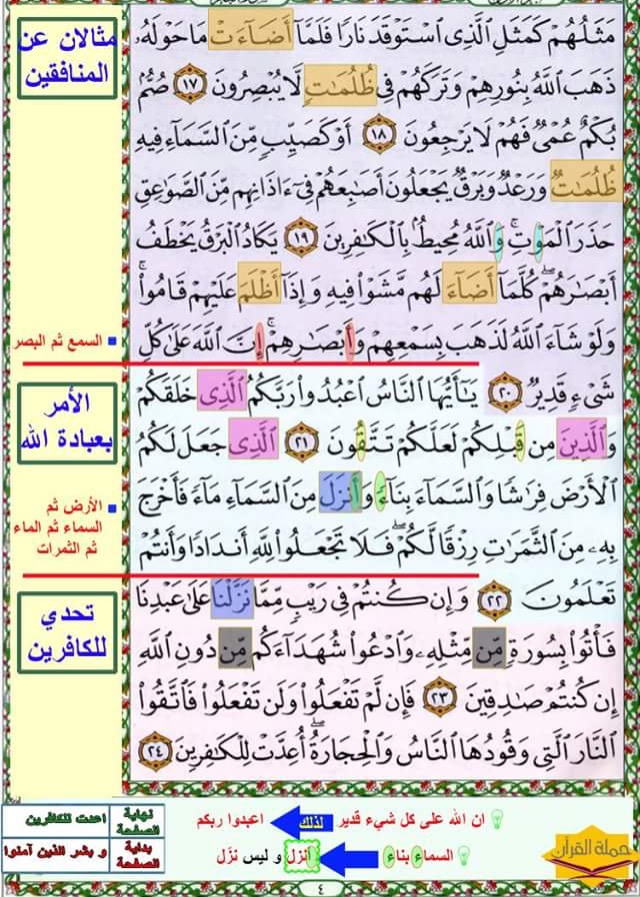 مثالان عن
المنافقين
مَثَلُهُمْ كَمَثَلِ ٱلَّذِى ٱسْتَوْقَدَ نَارًا فَلَمَّآ أَضَآءَتْ مَا حَوْلَهُۥ
ذَهَبَ ٱللَّهُ بِنُورِهِمْ وَتَرَكَهُمْ فِى ظُلُمَٰتٍ لَّا يُبْصِرُونَ ١٧ صُمٌّۢ
بُكْمٌ عُمْىٌ فَهُمْ لَا يَرْجِعُونَ ١٨ أَوْ كَصَيِّبٍ مِّنَ ٱلسَّمَآءِ فِيهِ
ظُلُمَٰتٌ وَرَعْدٌ وَبَرْقٌ يَجْعَلُونَ أَصَٰبِعَهُمْ فِىٓ ءَاذَانِهِم مِّنَ ٱلصَّوَٰعِقِ
حَذَرَ ٱلْمَوْتِ ۚ وَٱللَّهُ مُحِيطٌۢ بِٱلْكَٰفِرِينَ ١٩ يَكَادُ ٱلْبَرْقُ يَخْطَفُ
أَبْصَٰرَهُمْ ۖ كُلَّمَآ أَضَآءَ لَهُم مَّشَوْا۟ فِيهِ وَإِذَآ أَظْلَمَ عَلَيْهِمْ قَامُوا۟ ۚ
وَلَوْ شَآءَ ٱللَّهُ لَذَهَبَ بِسَمْعِهِمْ وَأَبْصَٰرِهِمْ ۚ إِنَّ ٱللَّهَ عَلَىٰ كُلِّ
السمع ثم البصر
شَىْءٍ قَدِيرٌ ٢٠ يَٰٓأَيُّهَا ٱلنَّاسُ ٱعْبُدُوا۟ رَبَّكُمُ ٱلَّذِى خَلَقَكُمْ
وَٱلَّذِينَ مِن قَبْلِكُمْ لَعَلَّكُمْ تَتَّقُونَ ٢١ ٱلَّذِى جَعَلَ لَكُمُ
ٱلْأَرْضَ فِرَٰشًا وَٱلسَّمَآءَ بِنَآءً وَأَنزَلَ مِنَ ٱلسَّمَآءِ مَآءً فَأَخْرَجَ
بِهِۦ مِنَ ٱلثَّمَرَٰتِ رِزْقًا لَّكُمْ ۖ فَلَا تَجْعَلُوا۟ لِلَّهِ أَندَادًا وَأَنتُمْ
الأمر
بعبادة الله
الأرض ثم
السماء ثم الماء
ثم الثمرات
تَعْلَمُونَ ٢٢ وَإِن كُنتُمْ فِى رَيْبٍ مِّمَّا نَزَّلْنَا عَلَىٰ عَبْدِنَا
فَأْتُوا۟ بِسُورَةٍ مِّن مِّثْلِهِۦ وَٱدْعُوا۟ شُهَدَآءَكُم مِّن دُونِ ٱللَّهِ
إِن كُنتُمْ صَٰدِقِينَ ٢٣ فَإِن لَّمْ تَفْعَلُوا۟ وَلَن تَفْعَلُوا۟ فَٱتَّقُوا۟
ٱلنَّارَ ٱلَّتِى وَقُودُهَا ٱلنَّاسُ وَٱلْحِجَارَةُ ۖ أُعِدَّتْ لِلْكَٰفِرِينَ ٢٤
تحدي
للكافرين
ان الله على كل شيء قدير لذلك اعبدوا ربكم
السماء بناء انزل و ليس نزّل
نهاية الصفحة اعدت للكافرين
بداية الصفحة و بشر الذين آمنوا
حملة القرآن
٤